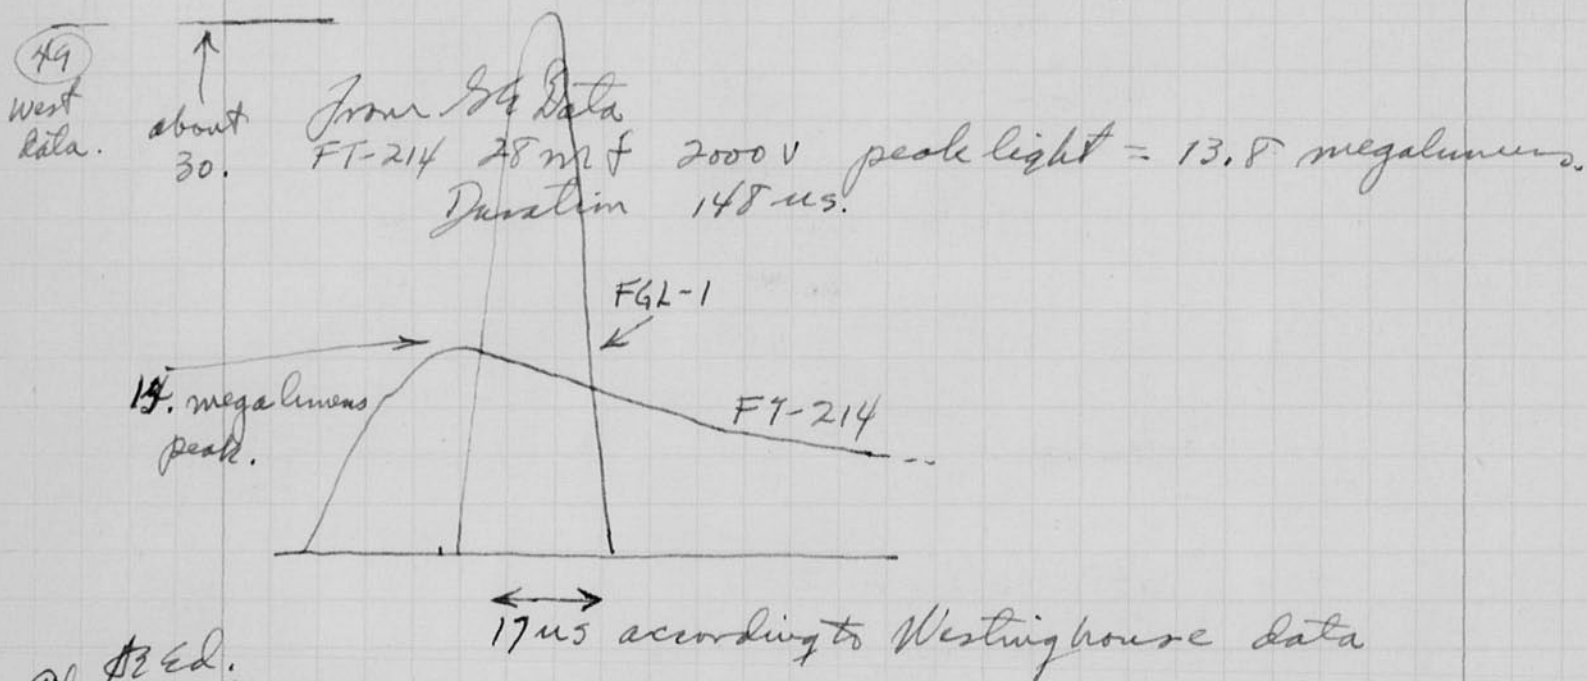 49
West
data.
about
30.
From GE Data
FT-214 28 mf 2000 V peak light = 13.8 megalumens.
Duration 148 us.
FGL-1
14. megalumens
peak.
FT-214
17 us according to Westinghouse data
Ed.